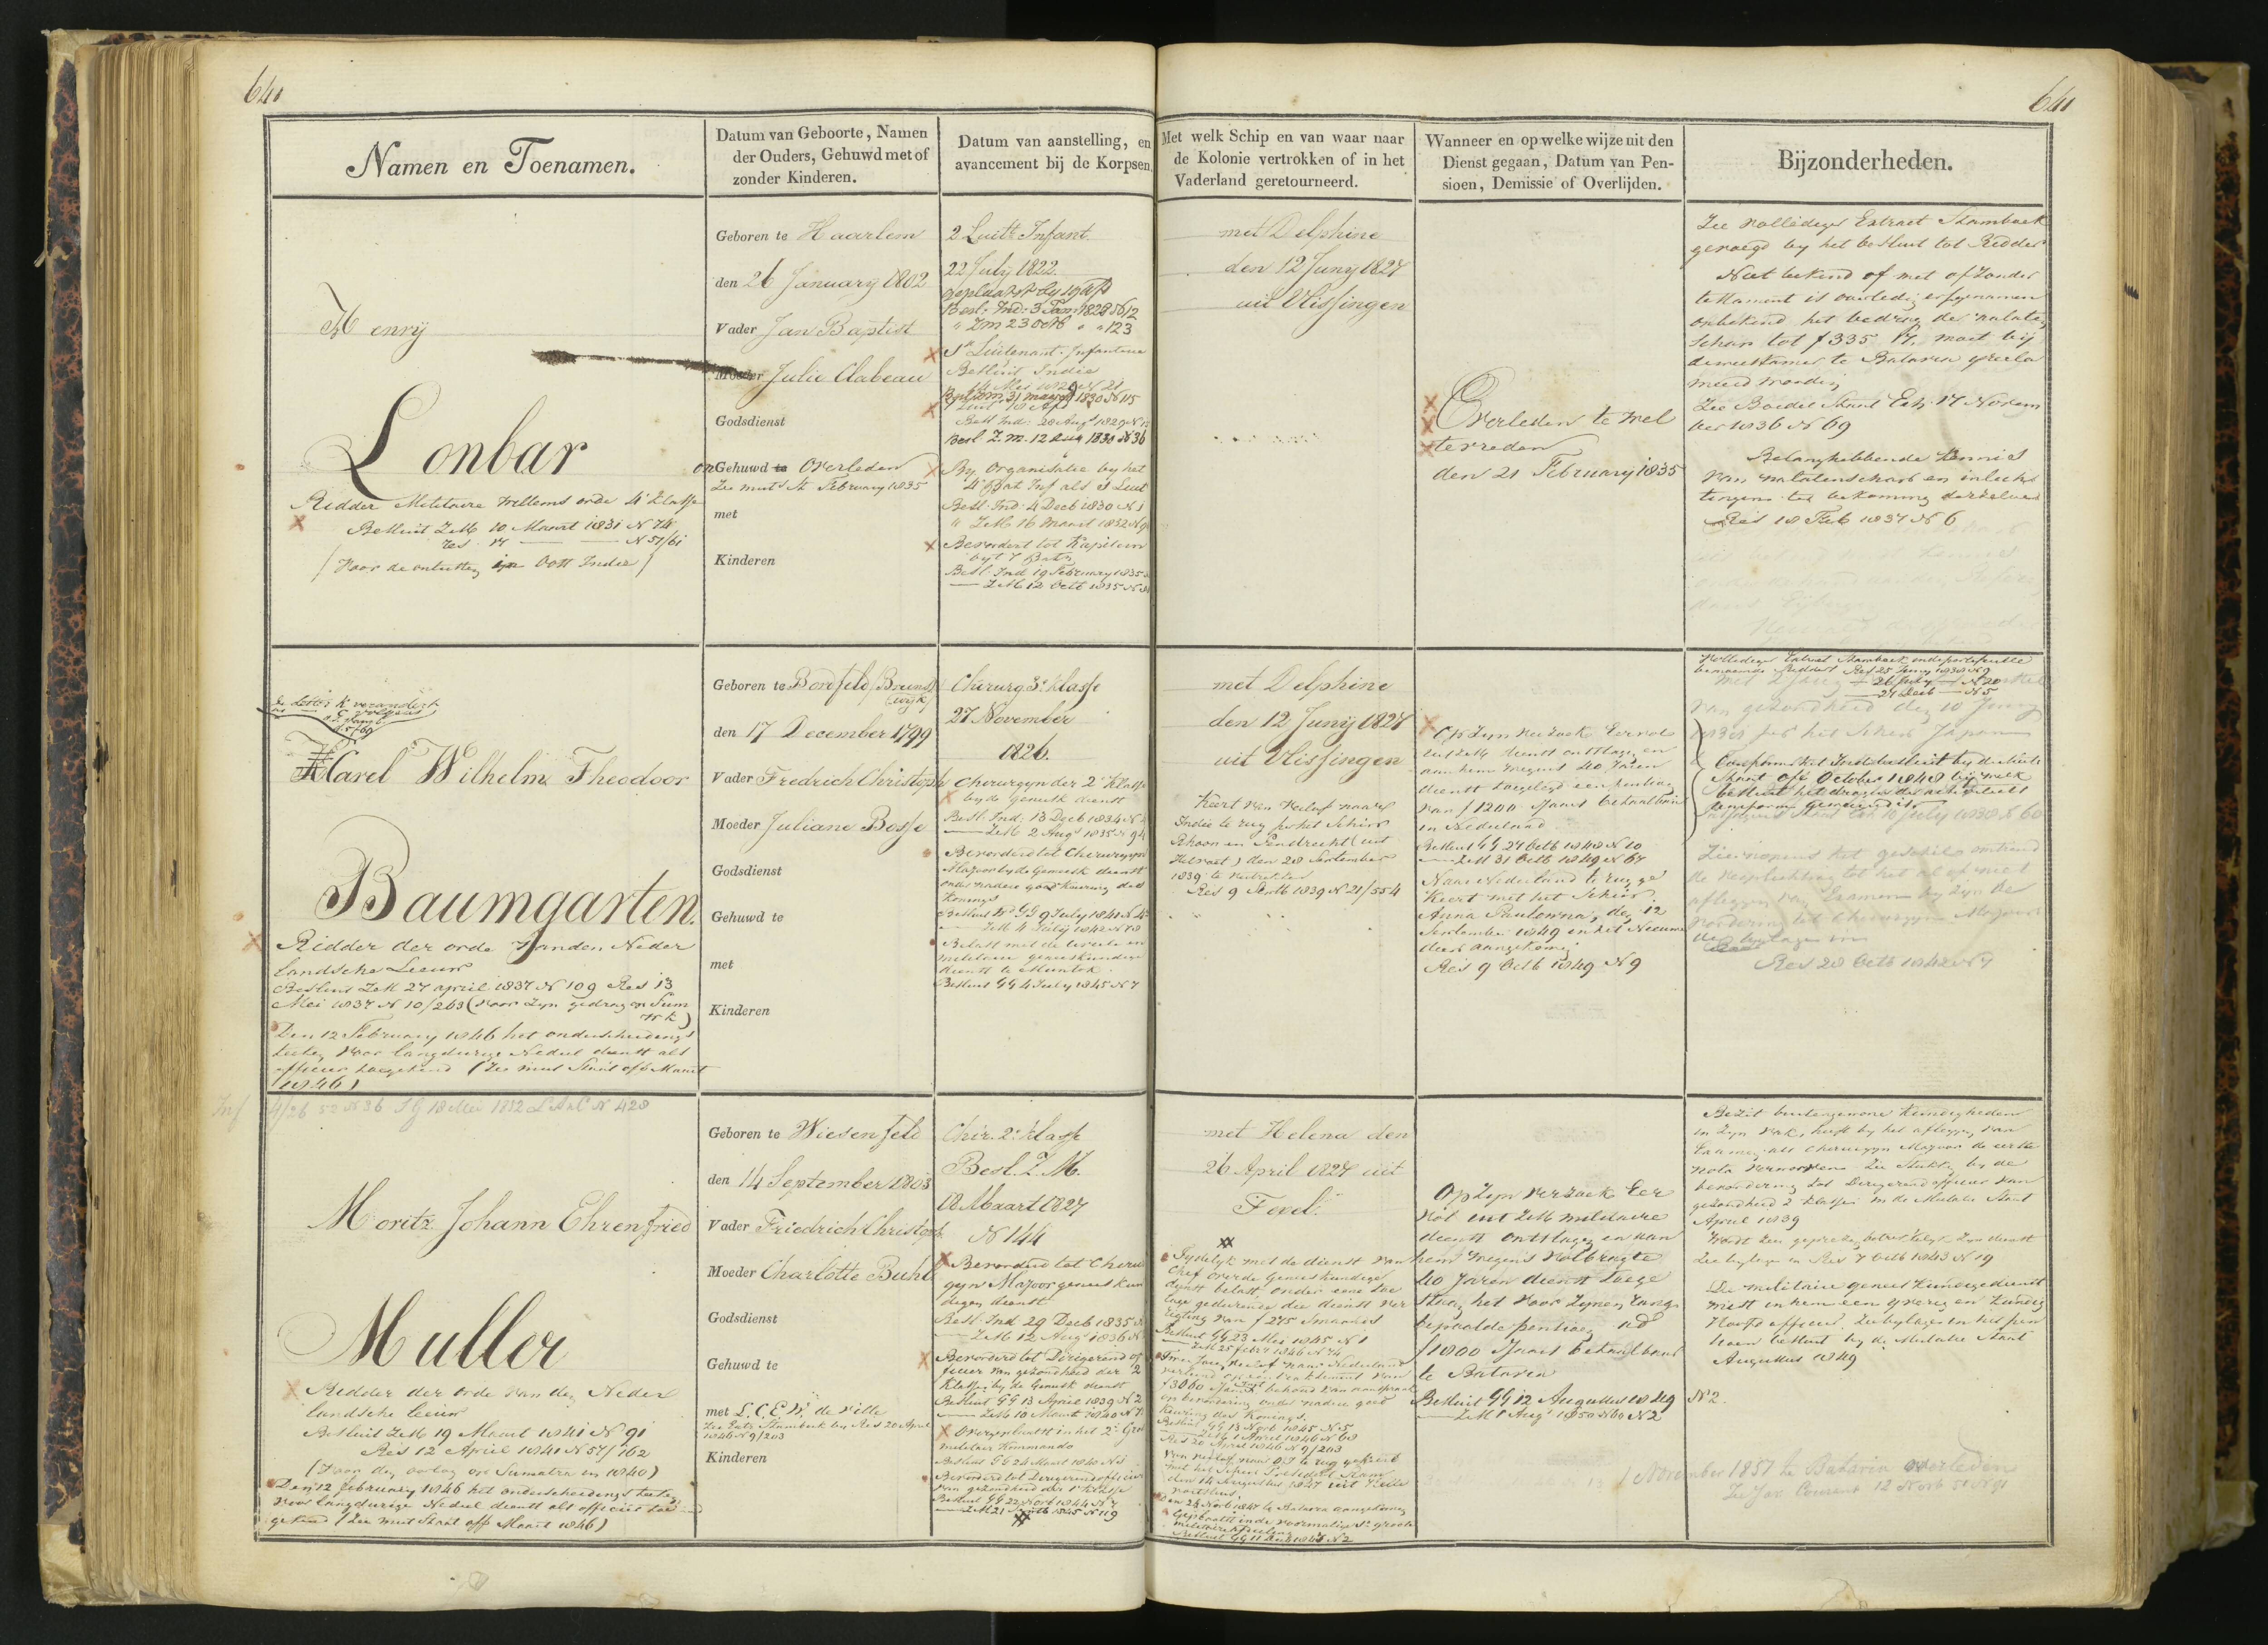 641
641
Namen en Toenamen.
Datum van Geboorte, Namen
der Ouders, Gehuwd met of
zonder Kinderen.
Datum van aanstelling, en
avancement bij de Korpsen.
Met welk Schip en van waar naar
de Kolonie vertrokken of in het
Vaderland geretourneerd.
Wanneer en op welke wijze uit den
Dienst gegaan, Datum van Pen-
sioen, Demissie of Overlijden.
Bijzonderheden.
Henrÿ
Lonbar
Ridder Militaire Willems orde 4e klasse
Besluit ZM 10 Maart 1831 N 74
Res 17 — — N 51/61
Geboren te Haarlem
den 26 January 1802
Vader Jan Baptist
Moeder Julie Clabeau
Godsdienst
onGehuwd te Overleden
Zie mut St February 1835
met
Kinderen
2 Luitt Infant.
22 July 1822.
Besl: Ind: 3 Jan 1828 N12
" ZM 23 Octb " " 123
1e Luitenant Infanterie
Besluit Indie
14 Mei 1829 N 21
Besl ZM 31 maart 1830 N 115
Besl Ind: 28 Augt 1829 N
Besl Z.M. 12 Aug 1830 N 36
By Organisatie by het
4e Bat Inf als 1 Luit
Besl: Ind: 4 Decb 1830 N 1
" ZM 16 Maart 1832 N
Bevordert tot Kapitein
Besl. Ind 19 February 1835
— ZM 12 Octb 1835 N
met Delphine
den 12 Juny 1827
uit Vlissingen
Overleden te Wel
tevreden
den 21 February 1835
Zie volledige Extract Stamboek
gevoegd by het besluit tot Ridder
Niet bekend of met of zonder
testament is overleden erfgenamen
onbekend het bedrag der nalaten
schap tot f 335.17. moet bij
de weeskamer te Batavia gerecla
meerd worden
Zie Boedel Staat Exh. 17 Novem
ber 1836 N 69
Belanghebbende kennis
van nalatenschap en inlich
tingen ter bekoming derzelve
Res 18 Feb 1837 N 6
de letter K veranderd
Karel Wilhelm Theodoor
Baumgarten.
Ridder der orde van den Neder
landsche Leeuw
Besluit ZM 27 april 1837 N 109 Res 13
Mei 1837 N 10/263 (voor zyn gedrag op Sum
Den 12 February 1846 het onderscheidings
teeken voor langdurige Nederl dienst als
officier toegekend (Zie mut Staat off Maart
1846)
Geboren te Bordfeld (Bruns
wijk)
den 17 December 1799
Vader Fredrich Christoph
Moeder Juliane Bosse
Godsdienst
Gehuwd te
met
Kinderen
Chirurg 3e klasse
27 November
1826.
Chirurgyn der 2e Klasse
by de geneesk dienst
Besl. Ind: 13 Decb 1834 N
— ZM 2 Augt 1835 N 94
Bevorderd tot Chirurgyn
Majoor by de Geneesk dienst
onder nadere goedkeuring des
Konings
Besluit GG 9 July 1841 N
— ZM 4 July 1842 N 78
Belast met de civiele en
militaire geneeskundige
dienst te Muntok
Besluit GG 4 July 1845 N 7
met Delphine
den 12 Junÿ 1827
uit Vlissingen
Keert van Verlof naar
Indie te rug per het Schip
Schoon en Pendrecht (uit
Helvoet) den 28 September
1839 te vertrekken
Res 9 Septb 1839 N 21/554
Op zyn verzoek Eervol
uit ZM dienst ontslagen en
aan hem wegens 20 Jaren
dienst toegelegd een pensioen
van f 1200 Jaars betaalbaar
in Nederland
Besluit GG 27 Octb 1848 N 10
— ZM 31 Octb 1849 N 67
Naar Nederland te rug ge
keert met het Schip
Anna Paulowna, den 12
September 1849 in het Nieuwe
diep aangekomen
Res 9 Octb 1849 N 9
26 July N 20
21 Decb — N 5
Staat off October 1848 bij welk
Res 28 Octb 1842 N 7
18 Mei 1852 N 428
Moritz Johann Ehrenfried
Muller
Ridder der orde van den Neder
landsche leeuw
Besluit ZM 19 Maart 1841 N 91
Res 12 April 1841 N 57/162
(Voor den oorlog op Sumatra in 1840)
Den 12 february 1846 het onderscheidings teeken
voor langdurige Nederl dienst als officier toe
gekend (Zie mut Staat off Maart 1846)
Geboren te Wiesenfeld
den 14 September 1803
Vader Friedrich Christoph
Moeder Charlotte Buhl
Godsdienst
Gehuwd te
met L. C. E. W. de Wille
Zie Extr Stamboek by Res 20 April
1846 N 9/203
Kinderen
Chir. 2e klasse
Besl. Z. M.
18 Maart 1827
N 144
Bevorderd tot Chirur
gyn Majoor geneeskun
digen dienst
Besl. Ind 29 Decb 1835 N
— ZM 12 Augt 1836 N
Bevorderd tot Dirigerend of
ficier van gezondheid der 2
klasse by de Geneesk dienst
Besluit GG 13 April 1839 N 2
— ZM 10 Maart 1840 N
Overgeplaatst in het 2e Groot
militair Kommando
Bevorderd tot Dirigerend officier
van gezondheid der 1e klasse
Besluit GG 22 Novb 1844 N 7
met Helena den
26 April 1827 uit
Texel.
Tydelyk met de dienst van
Chef over de Geneeskundige
dienst belast, onder eene toe
lage gedurende die dienst ver
rigting van f 275 smaands
Besluit GG 23 Mei 1845 N 1
ZM 25 febr 1846 N 74
keuring des Konings.
Besluit GG 13 Novb 1845 N 5
ZM 1 April 1846 N 68
Res 20 April 1846 N 9/203
van verlof naar OI te rug gekeerd
den 14 Augustus 1847 uit
den 24 Novb 1847 te Batavia aangekomen
Geplaatst in de voormalige 1e groote
Op Zyn verzoek Eer
vol uit ZM militaire
dienst ontslagen en aan
hem wegens volbragte
20 jaren dienst toege
staan, het voor zynen rang
bepaalde pensioen ad
f 1800 Sjaars betaalbaar
te Batavia
Besluit GG 12 Augustus 1849 N 2.
— ZM 1 Augt 1850 N 60 N 2
Bezit buitengewone kundigheden
in zyn vak, heeft by het afleggen van
Examen als chirurgyn Majoor de eerste
nota verworven. Zie Stukken by de
bevordering tot Dirigerend officier van
gezondheid 2 klasse in de Mutatie Staat
April 1839
Zie bylage in Res 7 Octb 1843 N 19
De militaire geneeskundige dienst
mist in hem een yverig en kundig
Hoofd officier. Zie bylagen in het pen
sioen besluit by de Mutatie Staat
Augustus 1849
1 November 1851 te Batavia overleden
Zie Jav Courant 12 Novb 51 N 91